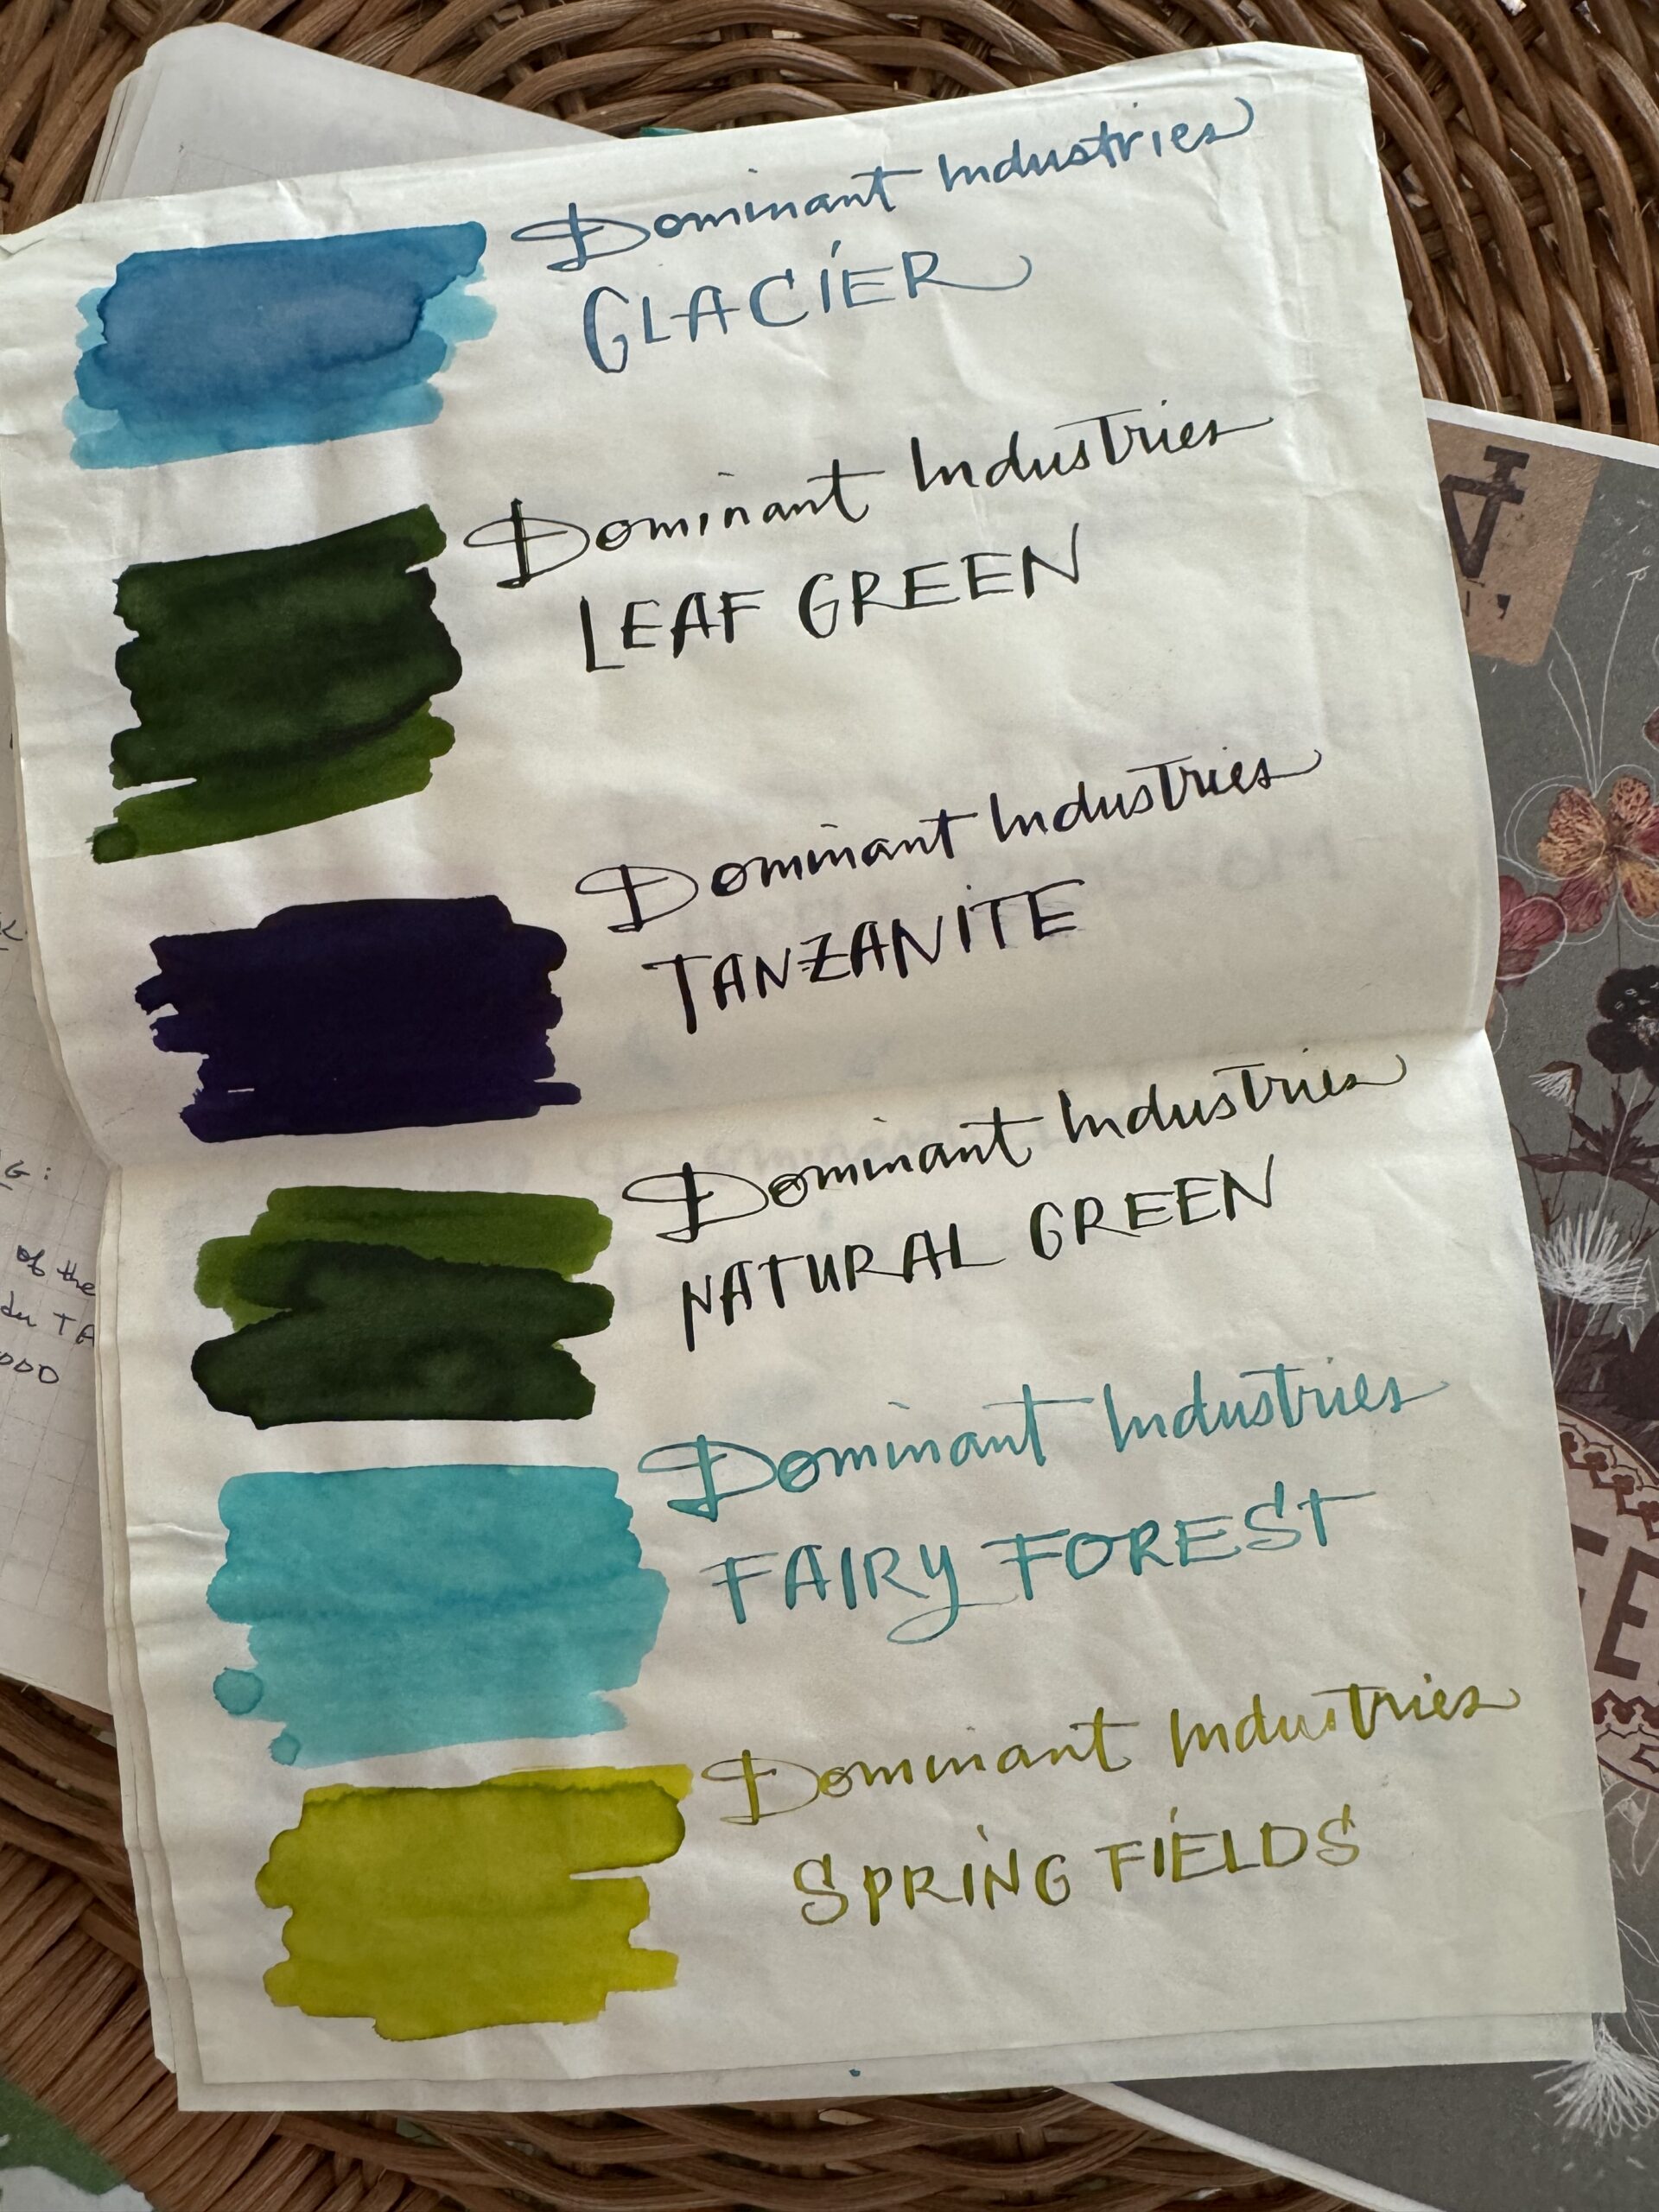 Dominant Industries
GLACIER
Dominant Industries
LEAF GREEN
Dominant Industries
TANZANITE
Dominant Industries
NATURAL GREEN
Dominant Industries
FAIRY FOREST
Dominant Industries
SPRING FIELDS
of the